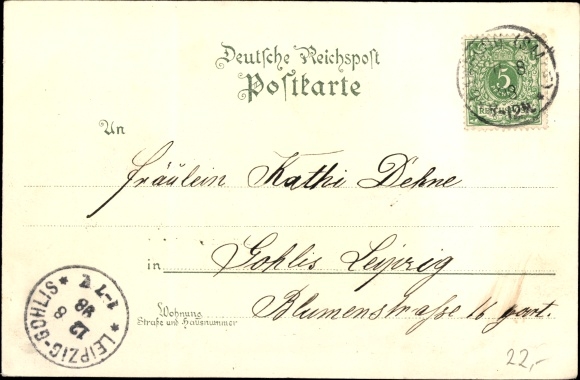 Deutsche Reichspost
Postkarte
5
8
98
An
Fräulein Kathi Dehne
in Gohlis Leipzig
Wohnung
Straße und Hausnummer
Blumenstraße 16 part.
LEIPZIG-GOHLIS
12
8
98
1-7 V
22,-